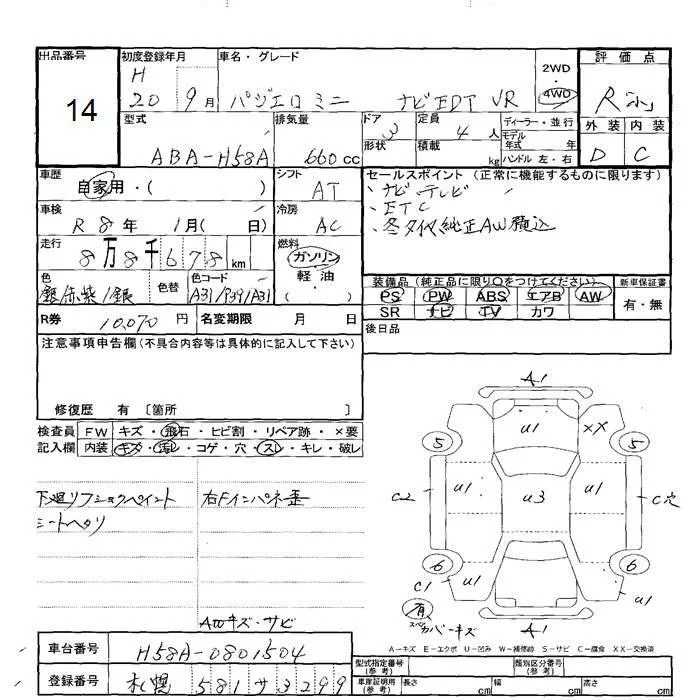 出品番号 初度登録年月 車名・グレード 2WD・4WD 評価点
14
H 20 9月 パジェロミニ ナビEDT VR R
型式 排気量 ドア形状 3 定員 4人 積載 kg ディーラー・並行 モデル年式 年 ハンドル 左・右 外装 内装
ABA-H58A 660cc D C
車歴 自家用・( ) シフト AT セールスポイント (正常に機能するものに限ります)
・ナビ テレビ
・ETC
・冬タイヤ純正AW積込
車検 R8年 1月( 日) 冷房 AC
走行 8万8千678km 燃料 ガソリン・軽油・( )
色 銀/赤紫/銀 色替 色コード A31/P39/A31
装備品 (純正品に限り○をつけてください) 新車保証書
PS PW ABS エアB AW 有・無
SR ナビ TV カワ
R券 10,070円 名変期限 月 日 後日品
注意事項申告欄(不具合内容等は具体的に記入して下さい)
修復歴 有 〔箇所 〕
検査員記入欄 FW キズ・飛石・ヒビ割・リペア跡・×要
内装 キズ・汚レ・コゲ・穴・スレ・キレ・破レ
下廻リフショックペイント 右Fインパネ歪
シートヘタリ
A100キズ・サビ
A1
U1 XX
5 5
C2 U1 U3 U1 C穴
6 6
C1 U1 U1 U1
有 スペ カバーキズ A1
A-キズ E-エクボ U-凹み W-補修跡 S-サビ C-腐食 XX-交換済
車台番号 H58A-0801504
登録番号 札幌 581 サ 3299
型式指定番号(参考) 類別区分番号(参考)
車庫証明用(参考) 長さ cm 幅 cm 高さ cm